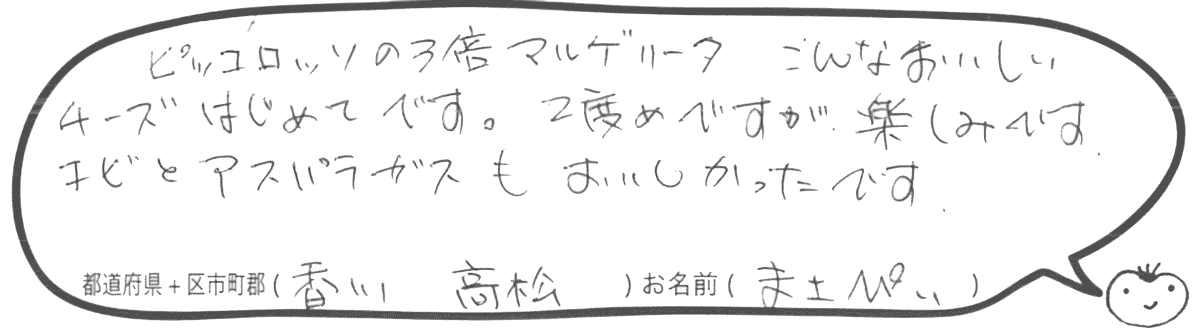 ピッコロッソの3倍マルゲリータ こんなおいしい
チーズはじめてです。2度めですが、楽しみです。
エビとアスパラガスも おいしかったです。
都道府県+区市町郡(香川 高松)お名前(まaぴぃ)